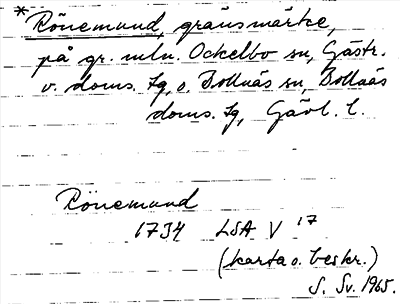 * Rönemund, gränsmärke,
på gr. mln. Ockelbo sn, Gästr.
v. doms. tg, o. Bollnäs sn, Bollnäs
doms. tg, Gävl. l.
Rönemund
1734 LSA V 17
(karta o. beskr.)
S. Sv. 1965.